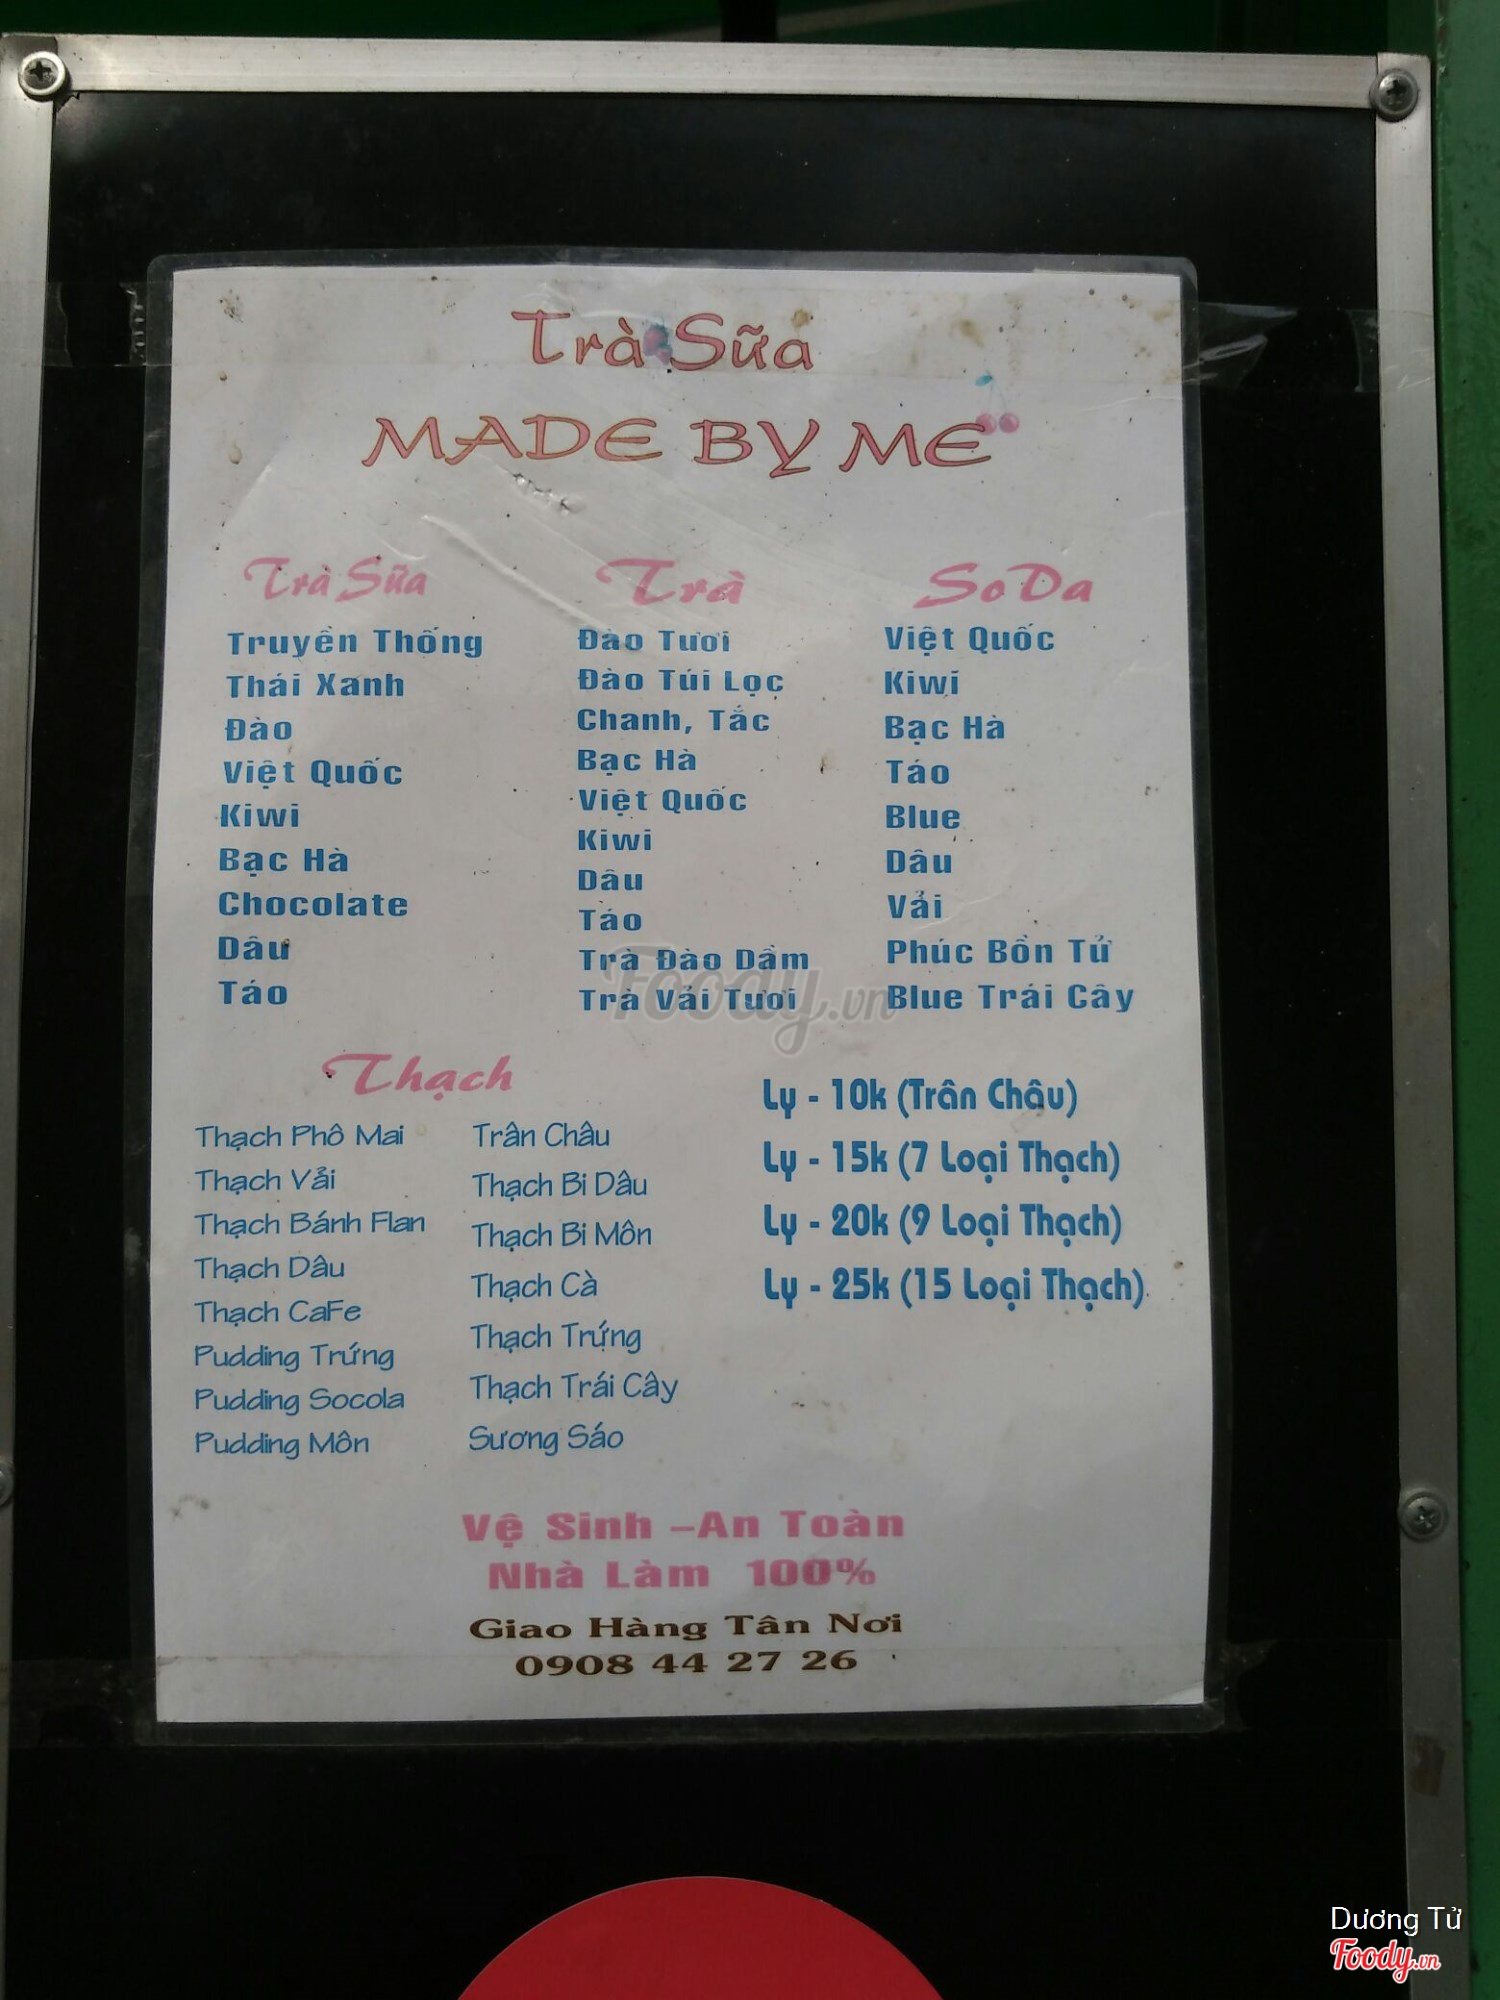 Trà Sữa
MADE BY ME
Trà Sữa
Truyền Thống
Thái Xanh
Đào
Việt Quốc
Kiwi
Bạc Hà
Chocolate
Dâu
Táo
Trà
Đào Tươi
Đào Túi Lọc
Chanh, Tắc
Bạc Hà
Việt Quốc
Kiwi
Dâu
Táo
Trà Đào Dầm
Trà Vải Tươi
SoDa
Việt Quốc
Kiwi
Bạc Hà
Táo
Blue
Dâu
Vải
Phúc Bồn Tử
Blue Trái Cây
Foody.vn
Thạch
Thạch Phô Mai
Thạch Vải
Thạch Bánh Flan
Thạch Dâu
Thạch CaFe
Pudding Trứng
Pudding Socola
Pudding Môn
Trân Châu
Thạch Bi Dâu
Thạch Bi Môn
Thạch Cà
Thạch Trứng
Thạch Trái Cây
Sương Sáo
Ly - 10k (Trân Châu)
Ly - 15k (7 Loại Thạch)
Ly - 20k (9 Loại Thạch)
Ly - 25k (15 Loại Thạch)
Vệ Sinh –An Toàn
Nhà Làm 100%
Giao Hàng Tân Nơi
0908 44 27 26
Dương Tử
Foody.vn